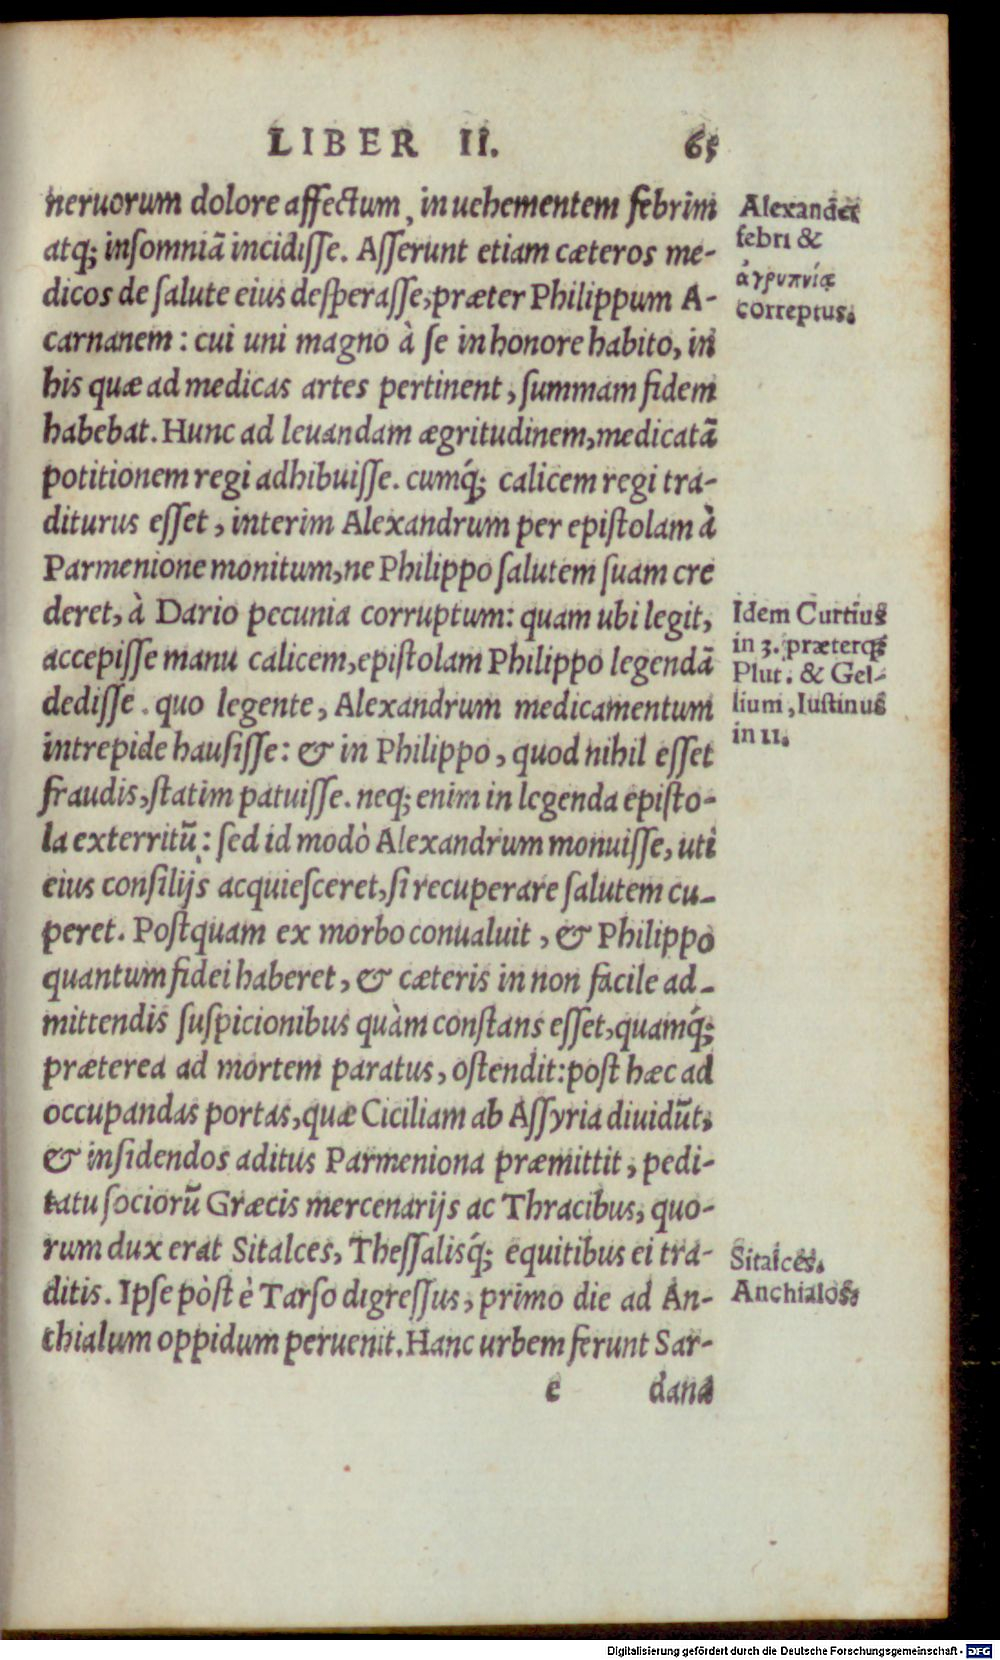 LIBER II. 65
neruorum dolore affectum, in uehementem febrim
atq; insomniã incidisse. Asserunt etiam cæteros me-
dicos de salute eius desperasse, præter Philippum A-
carnanem: cui uni magno à se in honore habito, in
his quæ ad medicas artes pertinent, summam fidem
habebat. Hunc ad leuandam ægritudinem, medicatã
potitionem regi adhibuisse. cumq́; calicem regi tra-
diturus esset, interim Alexandrum per epistolam à
Parmenione monitum, ne Philippo salutem suam cre
deret, à Dario pecunia corruptum: quam ubi legit,
accepisse manu calicem, epistolam Philippo legendã
dedisse. quo legente, Alexandrum medicamentum
intrepide hausisse: & in Philippo, quod nihil esset
fraudis, statim patuisse. neq; enim in legenda episto-
la exterritũ: sed id modò Alexandrum monuisse, uti
eius consilijs acquiesceret, si recuperare salutem cu-
peret. Postquam ex morbo conualuit, & Philippo
quantum fidei haberet, & cæteris in non facile ad-
mittendis suspicionibus quàm constans esset, quamq́;
præterea ad mortem paratus, ostendit: post hæc ad
occupandas portas, quæ Ciciliam ab Assyria diuidũt,
& insidendos aditus Parmeniona præmittit, pedi-
tatu sociorũ Græcis mercenarijs ac Thracibus, quo-
rum dux erat Sitalces, Thessalisq́; equitibus ei tra-
ditis. Ipse pòst è Tarso digressus, primo die ad An-
chialum oppidum peruenit. Hanc urbem ferunt Sar-
e dana
Alexander
febri &
ἀγρυπνίᾳ
correptus.
Idem Curtius
in 3. præterq̃
Plut. & Gel-
lium, Iustinus
in 11.
Sitalces.
Anchialos.
Digitalisierung gefördert durch die Deutsche Forschungsgemeinschaft - DFG